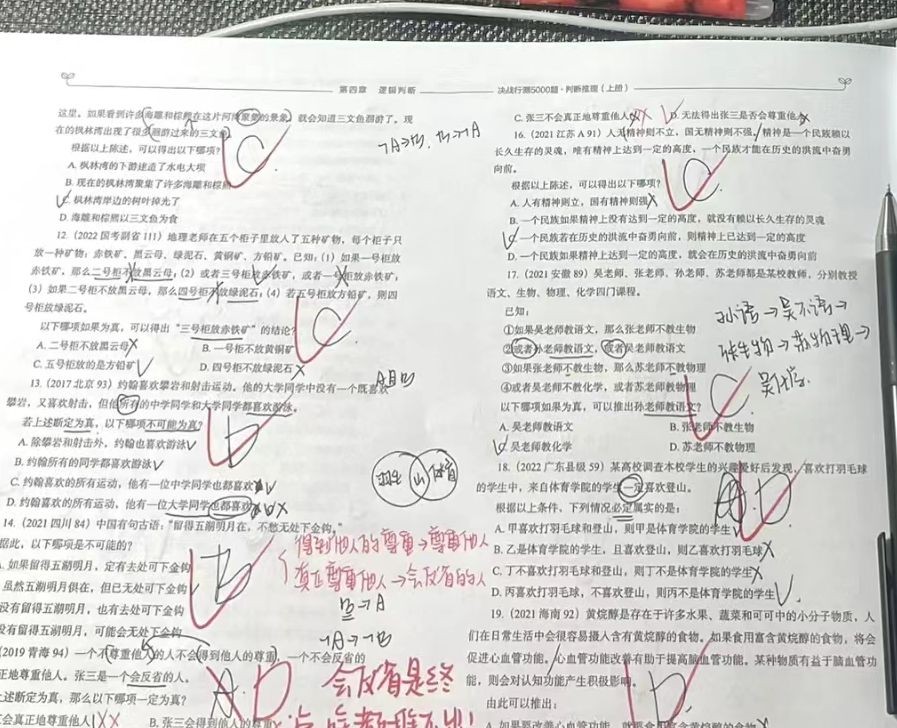 第四章 逻辑判断
决战行测5000题·判断推理(上册)
这里。如果看到许多海雕和棕熊在这片河湾聚集的景象,就会知道三文鱼洄游了。现
在的枫林湾出现了很多洄游过来的三文鱼。
根据以上陈述,可以得出以下哪项?
A. 枫林湾的下游建造了水电大坝
B. 现在的枫林湾聚集了许多海雕和棕熊
C. 枫林湾岸边的树叶掉光了
D. 海雕和棕熊以三文鱼为食
C
12.(2022国考副省111)地理老师在五个柜子里放入了五种矿物,每个柜子只
放一种矿物:赤铁矿、黑云母、绿泥石、黄铜矿、方铅矿。已知:(1)如果一号柜放
赤铁矿,那么二号柜不放黑云母;(2)或者三号柜放赤铁矿,或者一号柜放赤铁矿;
(3)如果二号柜不放黑云母,那么四号柜不放绿泥石;(4)若五号柜放方铅矿,则四
号柜放绿泥石。
以下哪项如果为真,可以得出“三号柜放赤铁矿”的结论?
A. 二号柜不放黑云母 B. 一号柜不放黄铜矿
C. 五号柜放的是方铅矿 D. 四号柜不放绿泥石
C
13.(2017北京93)约翰喜欢攀岩和射击运动。他的大学同学中没有一个既喜欢
攀岩,又喜欢射击,但他所有的中学同学和大学同学都喜欢游泳。
若上述断定为真,以下哪项不可能为真?
A. 除攀岩和射击外,约翰也喜欢游泳
B. 约翰所有的同学都喜欢游泳
C. 约翰喜欢的所有运动,他有一位中学同学也都喜欢
D. 约翰喜欢的所有运动,他有一位大学同学也都喜欢
14.(2021四川84)中国有句古语:“留得五湖明月在,不愁无处下金钩。”
据此,以下哪项是不可能的?
如果留得五湖明月,定有去处可下金钩
虽然五湖明月俱在,但已无处可下金钩
没有留得五湖明月,也有去处可下金钩
没有留得五湖明月,可能会无处下金钩
B
(2019青海94)一个不尊重他人的人不会得到他人的尊重,一个不会反省的
正地尊重他人。张三是一个会反省的人。
上述断定为真,那么以下哪项一定为真?
会真正地尊重他人 B. 张三会得到他人的尊重
A D
得到他人的尊重→尊重他人
真正尊重他人→会反省的人
B→A
¬A→¬B
会反省是终
C. 张三不会真正地尊重他人 D. 无法得出张三是否会尊重他人
16.(2021江苏A 91)人无精神则不立,国无精神则不强。精神是一个民族赖以
长久生存的灵魂,唯有精神上达到一定的高度,一个民族才能在历史的洪流中奋勇
向前。
根据以上陈述,可以得出以下哪项?
A. 人有精神则立,国有精神则强
B. 一个民族如果精神上没有达到一定的高度,就没有赖以长久生存的灵魂
C. 一个民族若在历史的洪流中奋勇向前,则精神上已达到一定的高度
D. 一个民族如果精神上达到一定的高度,就会在历史的洪流中奋勇向前
C
17.(2021安徽89)吴老师、张老师、孙老师、苏老师都是某校教师,分别教授
语文、生物、物理、化学四门课程。
已知:
①如果吴老师教语文,那么张老师不教生物
②或者孙老师教语文,或者吴老师教语文
③如果张老师不教生物,那么苏老师不教物理
④或者吴老师不教化学,或者苏老师教物理
以下哪项如果为真,可以推出孙老师教语文?
A. 吴老师教语文 B. 张老师不教生物
C. 吴老师教化学 D. 苏老师不教物理
C
孙语→吴不语→
张生物→苏物理→
18.(2022广东县级59)某高校调查本校学生的兴趣爱好后发现,喜欢打羽毛球
的学生中,来自体育学院的学生一定喜欢登山。
根据以上条件,下列情况必定属实的是:
A. 甲喜欢打羽毛球和登山,则甲是体育学院的学生
B. 乙是体育学院的学生,且喜欢登山,则乙喜欢打羽毛球
C. 丁不喜欢打羽毛球和登山,则丁不是体育学院的学生
D. 丙喜欢打羽毛球,不喜欢登山,则丙不是体育学院的学生
D
19.(2021海南92)黄烷醇是存在于许多水果、蔬菜和可可中的小分子物质,人
们在日常生活中会很容易摄入含有黄烷醇的食物。如果食用富含黄烷醇的食物,将会
促进心血管功能。心血管功能改善有助于提高脑血管功能。某种物质有益于脑血管功
能,则会对认知功能产生积极影响。
由此可以推出:
D